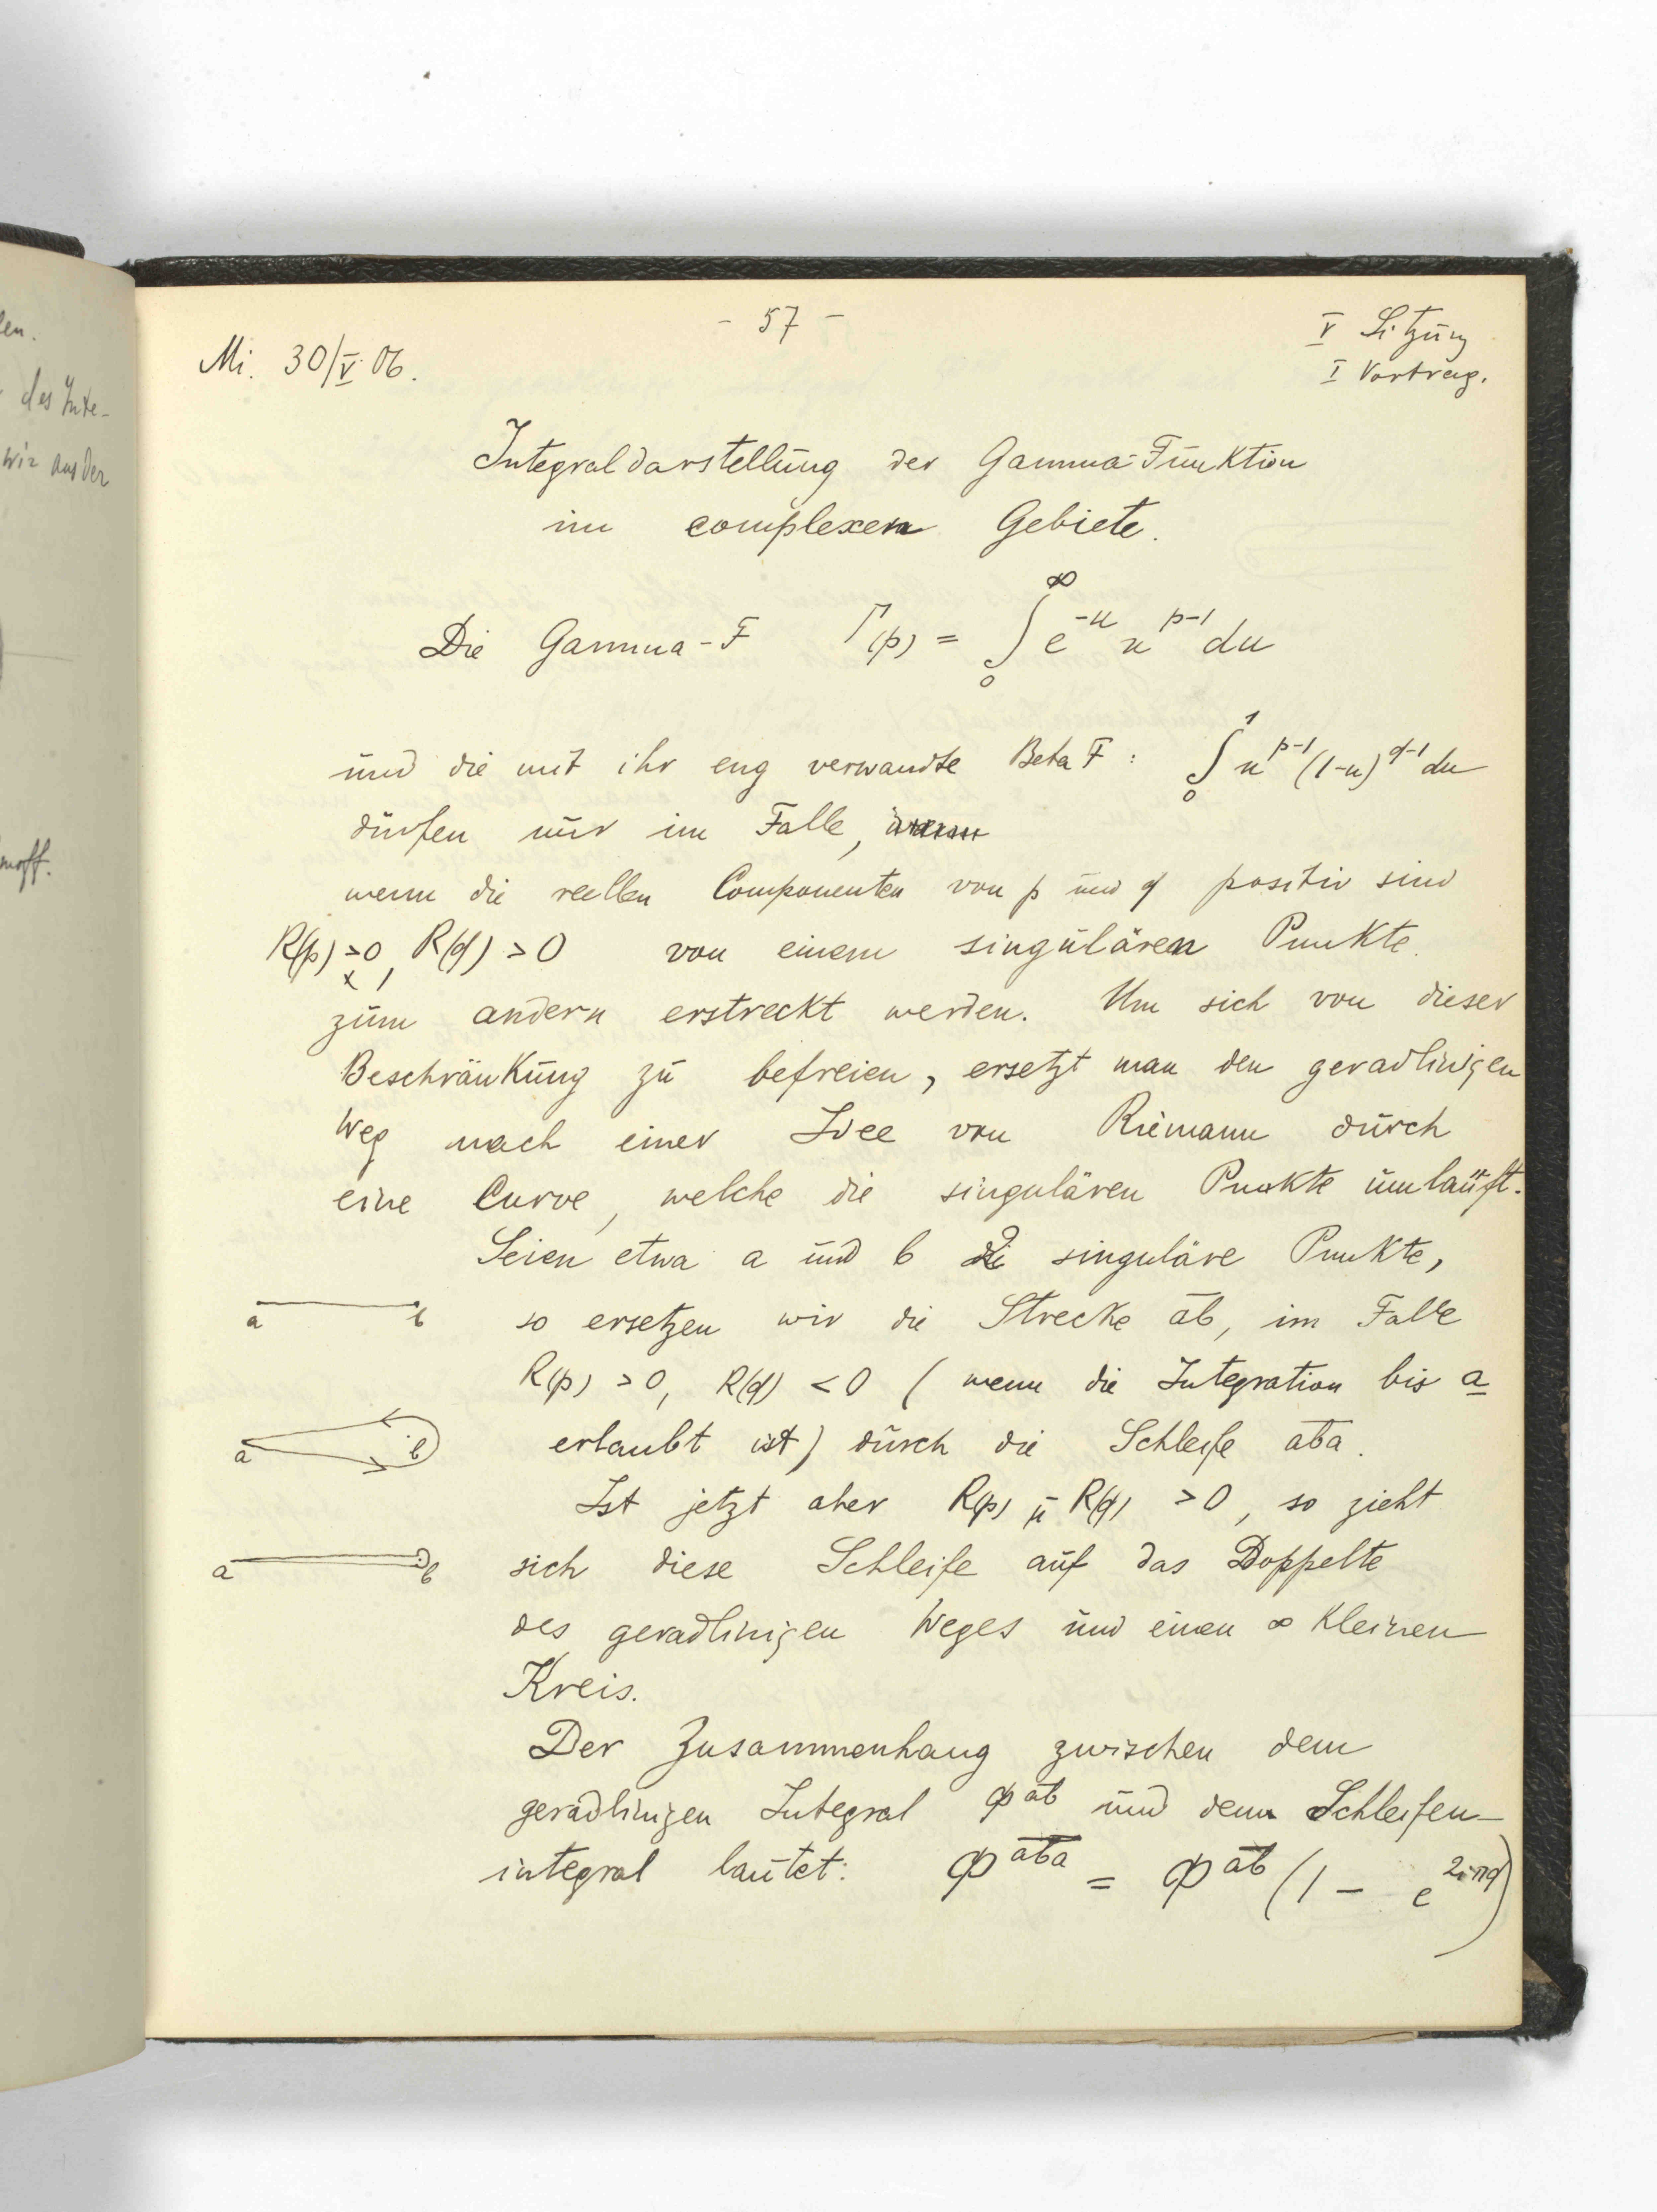 len.
des Inte-
wir aus der
moff.
- 57 -
Mi. 30/V 06.
V Sitzung
I Vortrag.
Integraldarstellung der Gamma-Funktion
im complexen Gebiete.
Die Gamma-F Γ(p) = ∫₀^∞ e^{-u} u^{p-1} du
und die mit ihr eng verwandte Beta F: ∫₀^1 u^{p-1} (1-u)^{q-1} du
dürfen nur im Falle,
wenn die reellen Componenten von p und q positiv sind
R(p) > 0, R(q) > 0 von einem singulären Punkte
zum andern erstreckt werden. Um sich von dieser
Beschränkung zu befreien, ersetzt man den geradlinigen
Weg nach einer Idee von Riemann durch
eine Curve, welche die singulären Punkte umläuft.
Seien etwa a und b 2 singuläre Punkte,
a b so ersetzen wir die Strecke ab, im Falle
R(p) > 0, R(q) < 0 (wenn die Integration bis a
a b erlaubt ist) durch die Schleife aba.
Ist jetzt aber R(p) u R(q) > 0, so zieht
a b sich diese Schleife auf das Doppelte
des geradlinigen Weges und einen ∞ kleinen
Kreis.
Der Zusammenhang zwischen dem
geradlinigen Integral Φ^{ab} und dem Schleifen-
integral lautet: Φ^{aba} = Φ^{ab} (1 - e^{2iπq})